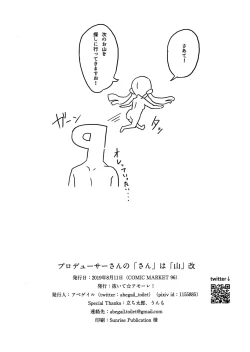 さあて！
次のお山を
探しに行ってきますね！
タッ
ガーン
プロデューサーさんの「さん」は「山」改
発行日：2019年8月11日（COMIC MARKET 96）
発行：抜いて☆アモーレ！
発行人：アベゲイル（twitter：abegail_todet）（pixiv id：1155885）
Special Thanks：立ち太郎、うんも
連絡先：abegail.todet@gmail.com
印刷：Sunrise Publication 様
twitter